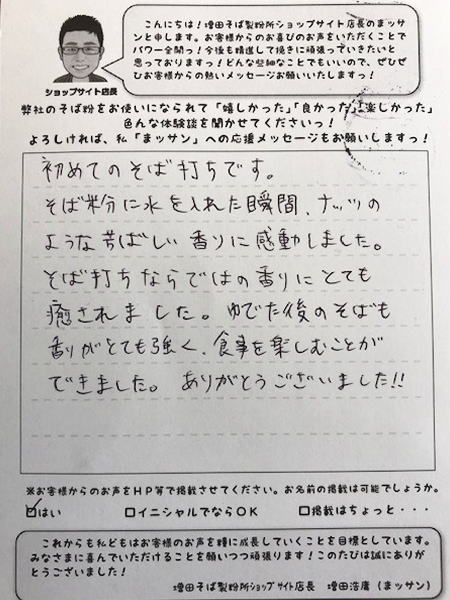 こんにちは！増田そば製粉所ショップサイト店長のまッサ
ンと申します。お客様からのお喜びのお声をいただくことで
パワー全開っ！今後も精進して挽きに頑張っていきたいと
思っております！どんな些細なことでもいいので、ぜひぜ
ひお客様からの熱いメッセージお願いいたしますっ！
ショップサイト店長
弊社のそば粉をお使いになられて「嬉しかった」「良かった」「楽しかった」
色んな体験談を聞かせてくださいっ！
よろしければ、私「まッサン」への応援メッセージもお願いしますっ！
初めてのそば打ちです。
そば粉に水を入れた瞬間、ナッツの
ような芳ばしい香りに感動しました。
そば打ちならではの香りにとても
癒されました。ゆでた後のそばも
香りがとても強く、食事を楽しむことが
できました。ありがとうございました!!
※お客様からのお声をHP等で掲載させてください。お名前の掲載は可能でしょうか。
☑はい □イニシャルでならOK □掲載はちょっと・・・
これからも私どもはお客様のお声を糧に成長していくことを目標としています。
みなさまに喜んでいただけることを願いつつ頑張ります！このたびは誠にありが
とうございました！
増田そば製粉所ショップサイト店長 増田浩庸（まッサン）